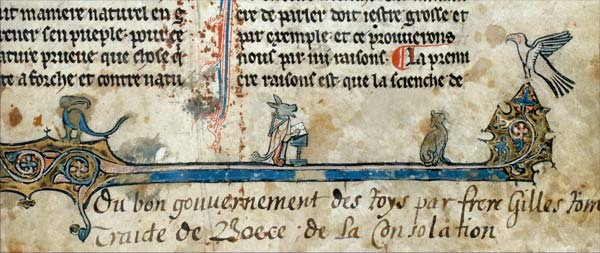 ut maniere naturel en g
uener son pueple. pour ce
ature prueue que chose q
te a forche et contre natu
ere de parler doit iestre grosse et
par exemple. et ce prouuerons
nous par iiij raisons. La premi
ere raisons est que la scienche de
Du bon gouvernement des Roys par frere Gilles Rom
Traite de Boece ; de la Consolation